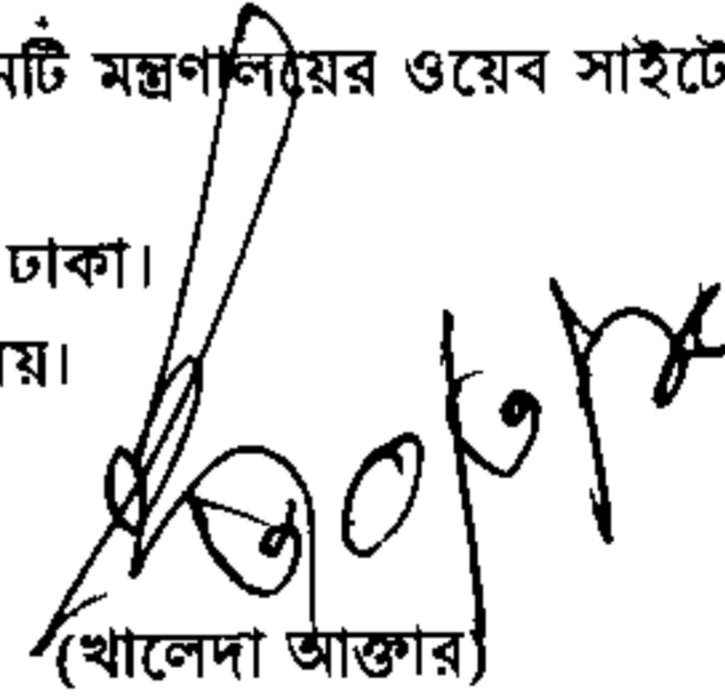 নটি মন্ত্রণালয়ের ওয়েব সাইটে
ঢাকা।
য়।
(খালেদা আক্তার)